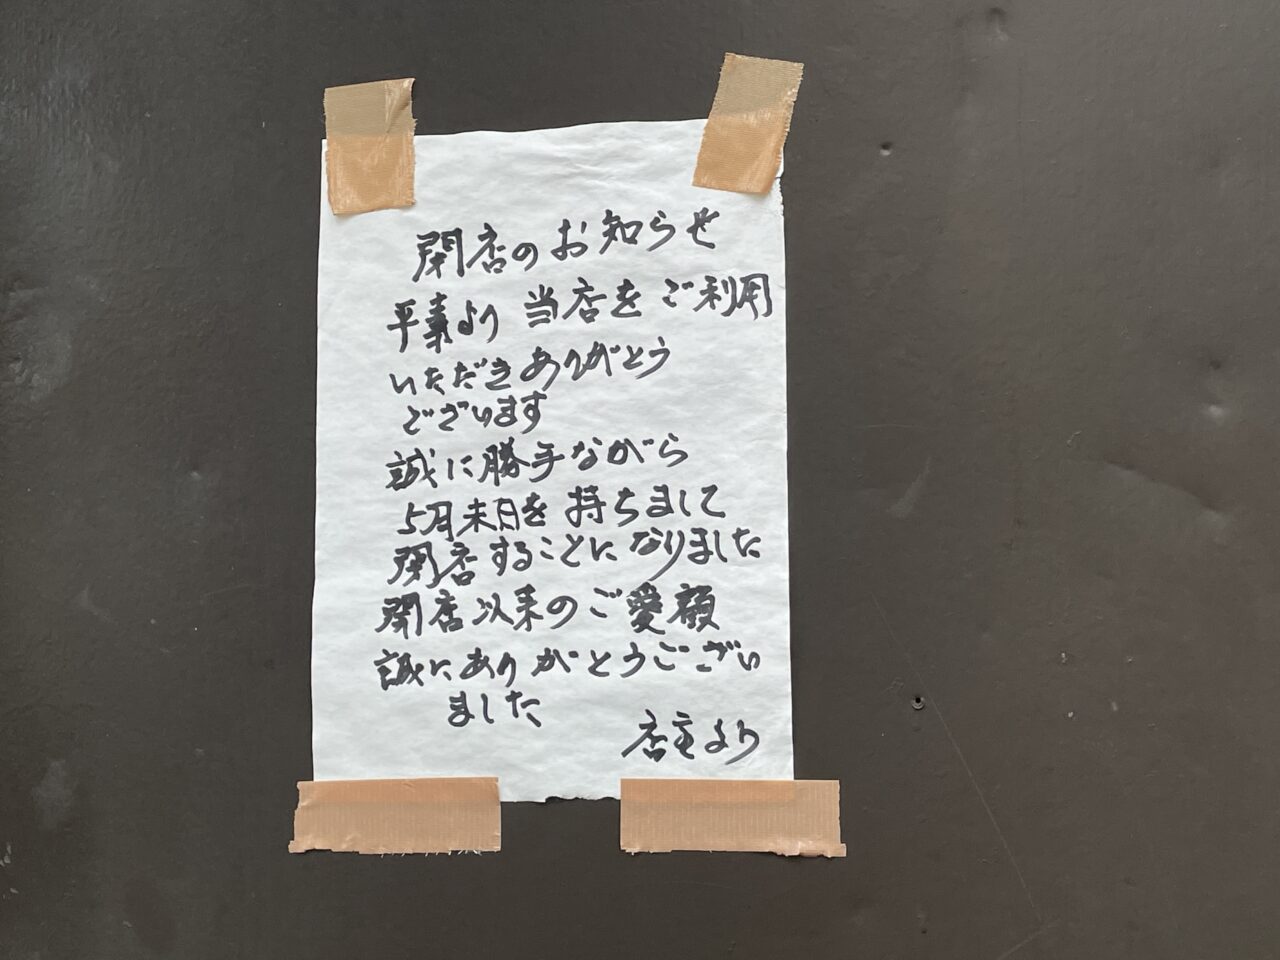 閉店のお知らせ
平素より当店をご利用
いただきありがとう
ございます
誠に勝手ながら
5月末日を持ちまして
閉店することになりました
開店以来のご愛顧
誠にありがとうござい
ました
店主より